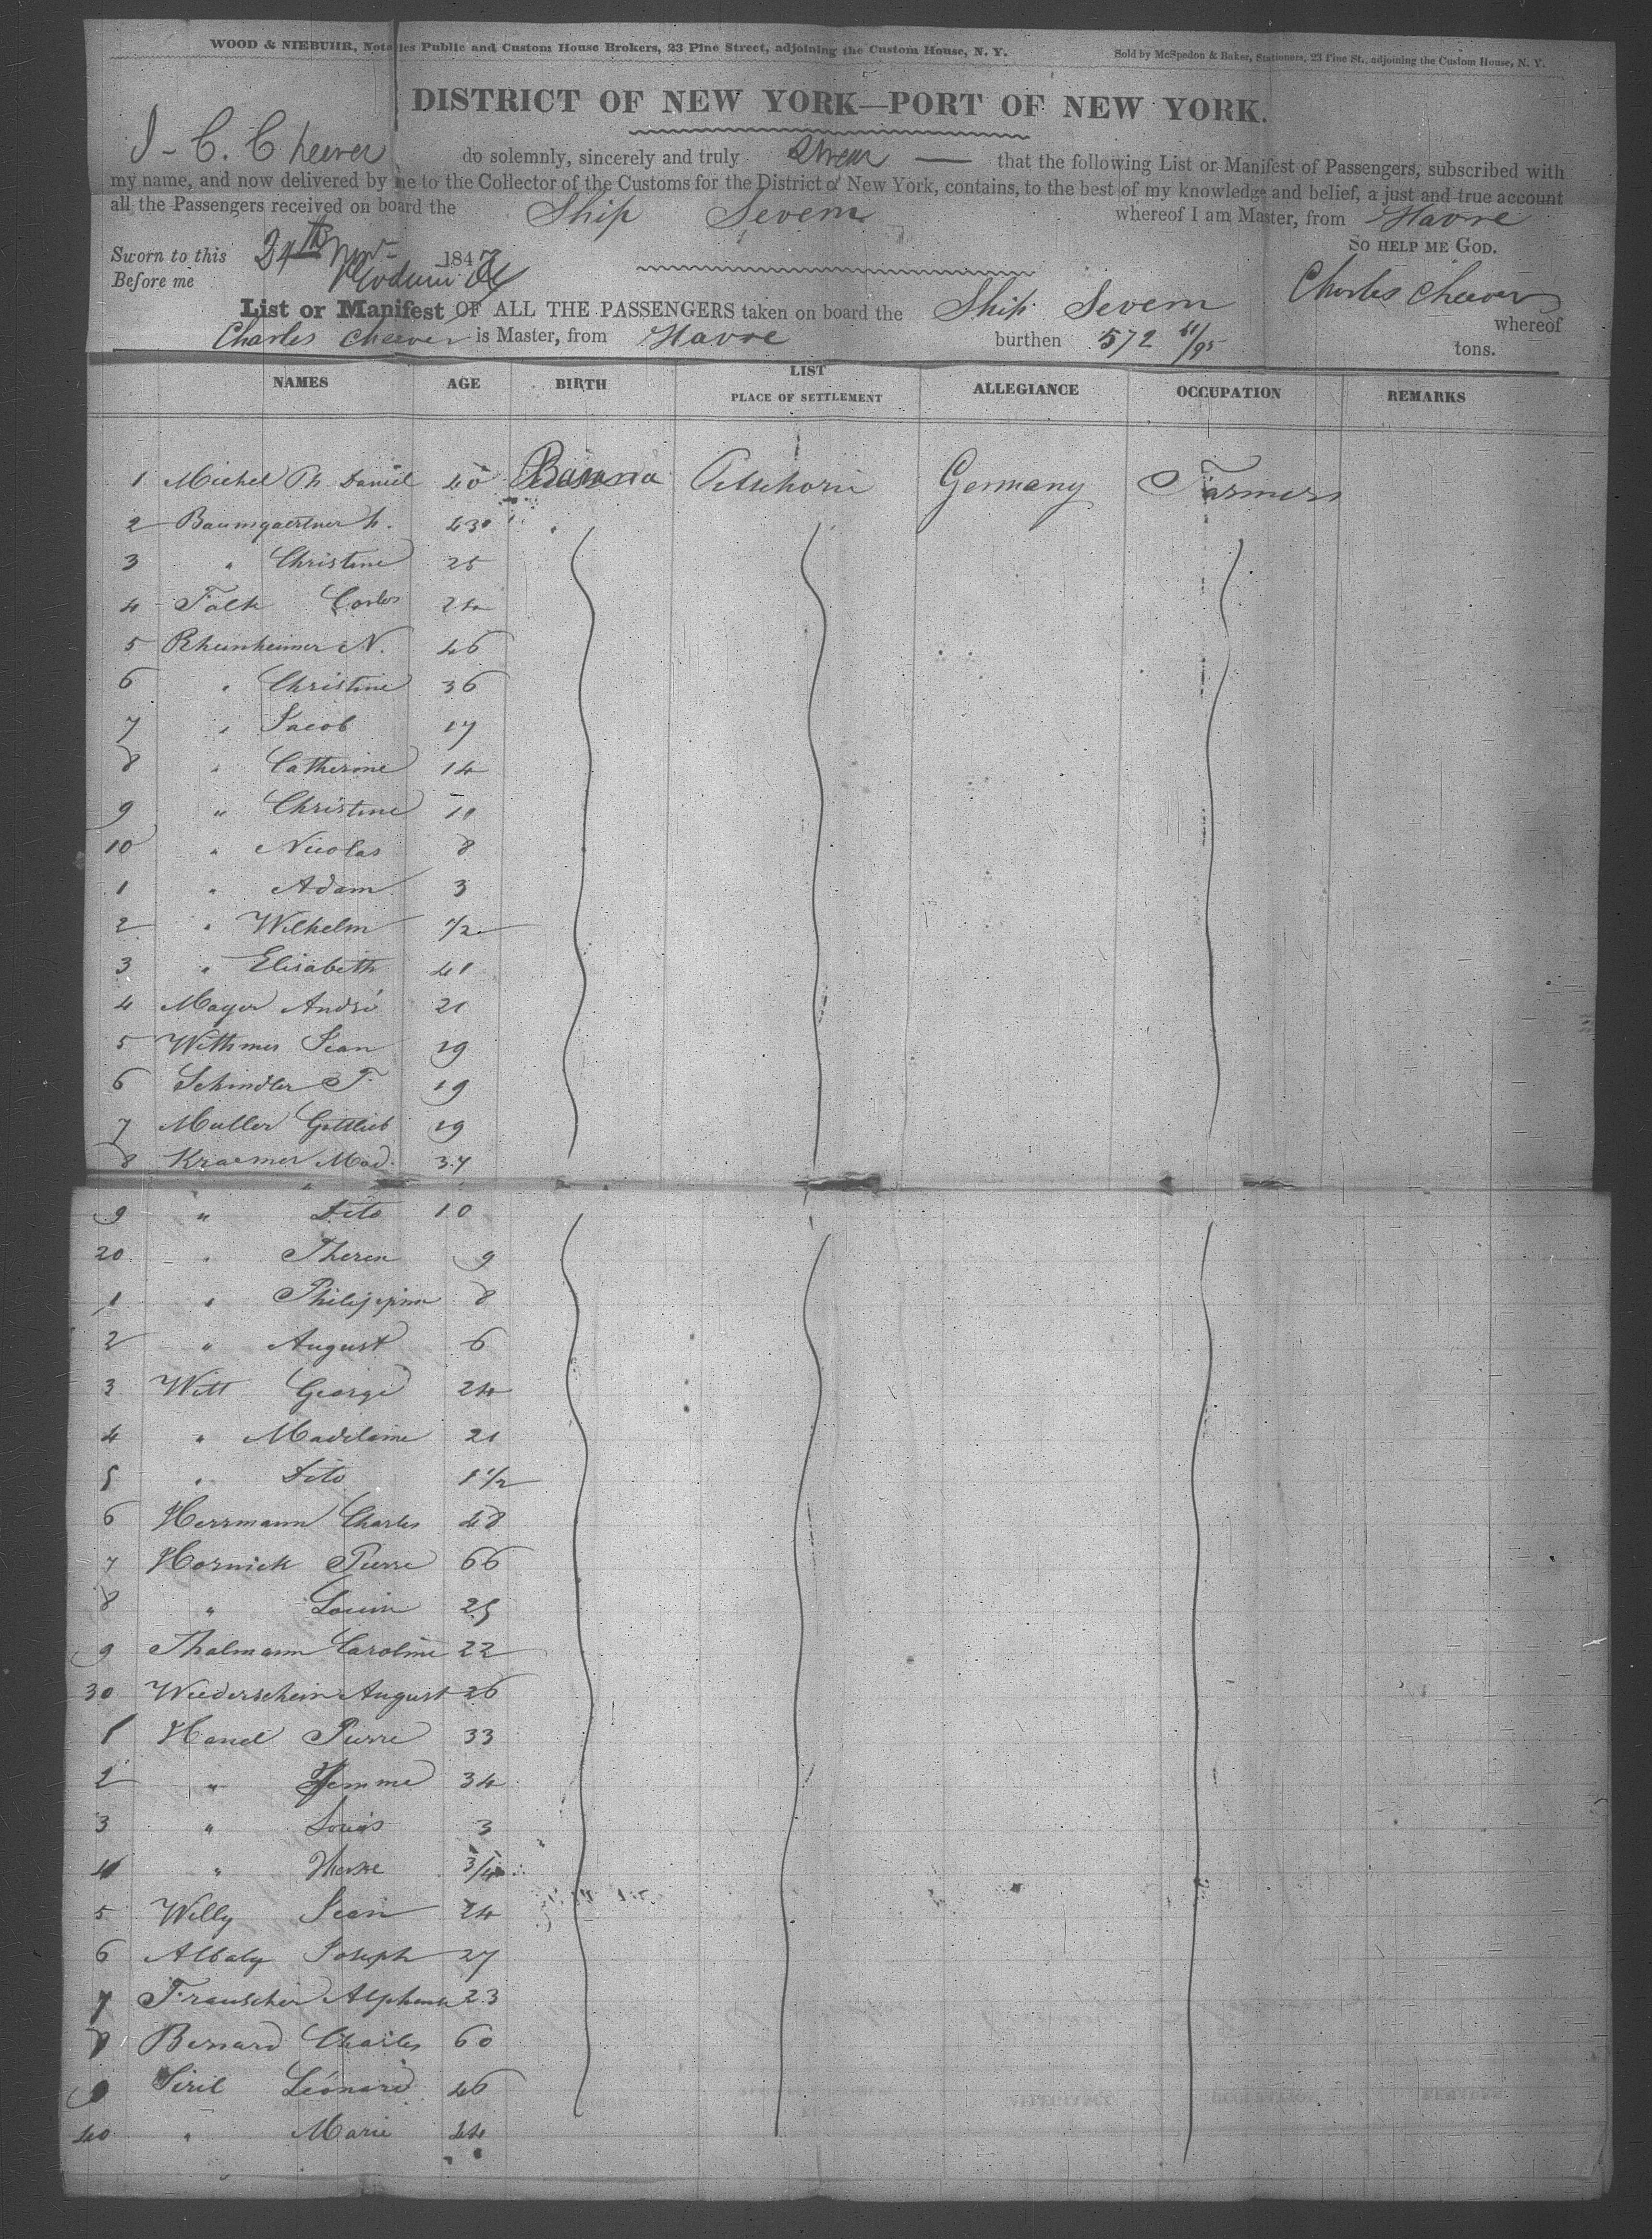 WOOD & NIEBUHR, Notaries Public and Custom House Brokers, 23 Pine Street, adjoining the Custom House, N. Y.
Sold by McSpedon & Baker, Stationers, 23 Pine St., adjoining the Custom House, N. Y.
DISTRICT OF NEW YORK—PORT OF NEW YORK.
I - C. Cheever do solemnly, sincerely and truly Swear — that the following List or Manifest of Passengers, subscribed with
my name, and now delivered by me to the Collector of the Customs for the District of New York, contains, to the best of my knowledge and belief, a just and true account
all the Passengers received on board the Ship Severn whereof I am Master, from Havre
SO HELP ME GOD.
Sworn to this 24th Nov 1847
Before me
Charles Cheever
List or Manifest OF ALL THE PASSENGERS taken on board the Ship Severn whereof
Charles Cheever is Master, from Havre burthen 572 61/95 tons.
NAMES AGE BIRTH LIST PLACE OF SETTLEMENT ALLEGIANCE OCCUPATION REMARKS
1 Michel Ph. Daniel 40 Bavaria Germany Farmers
2 Baumgaertner h. 43
3 " Christine 25
4 Falk 24
5 Rheinheimer N. 46
6 " Christine 36
7 " Jacob 17
8 " Catherine 14
9 " Christine 11
10 " Nicolas 8
1 " Adam 3
2 " Wilhelm 1/2
3 " Elisabeth 41
4 Mayer André 21
5 Withmer Jean 19
6 Schindler F. 19
7 Muller Gottlieb 19
8 Kraemer Mad. 37
9 " Dito 10
20 " Theren 9
1 " Philippine 8
2 " August 6
3 Witt George 24
4 " Madelaine 21
5 " Dito 1 1/2
6 Herrmann Charles 48
7 Hornick Pierre 66
8 " 25
9 Thalmann Caroline 22
30 Wiederschein August 26
1 Hanel Pierre 33
2 " Femme 34
3 " Louis 3
4 " 3/4
5 Willy Jean 24
6 Albaly Joseph 27
7 Frauscher Alphonse 23
8 Bernard Charles 60
9 Siril Léonard 46
40 " Marie 44